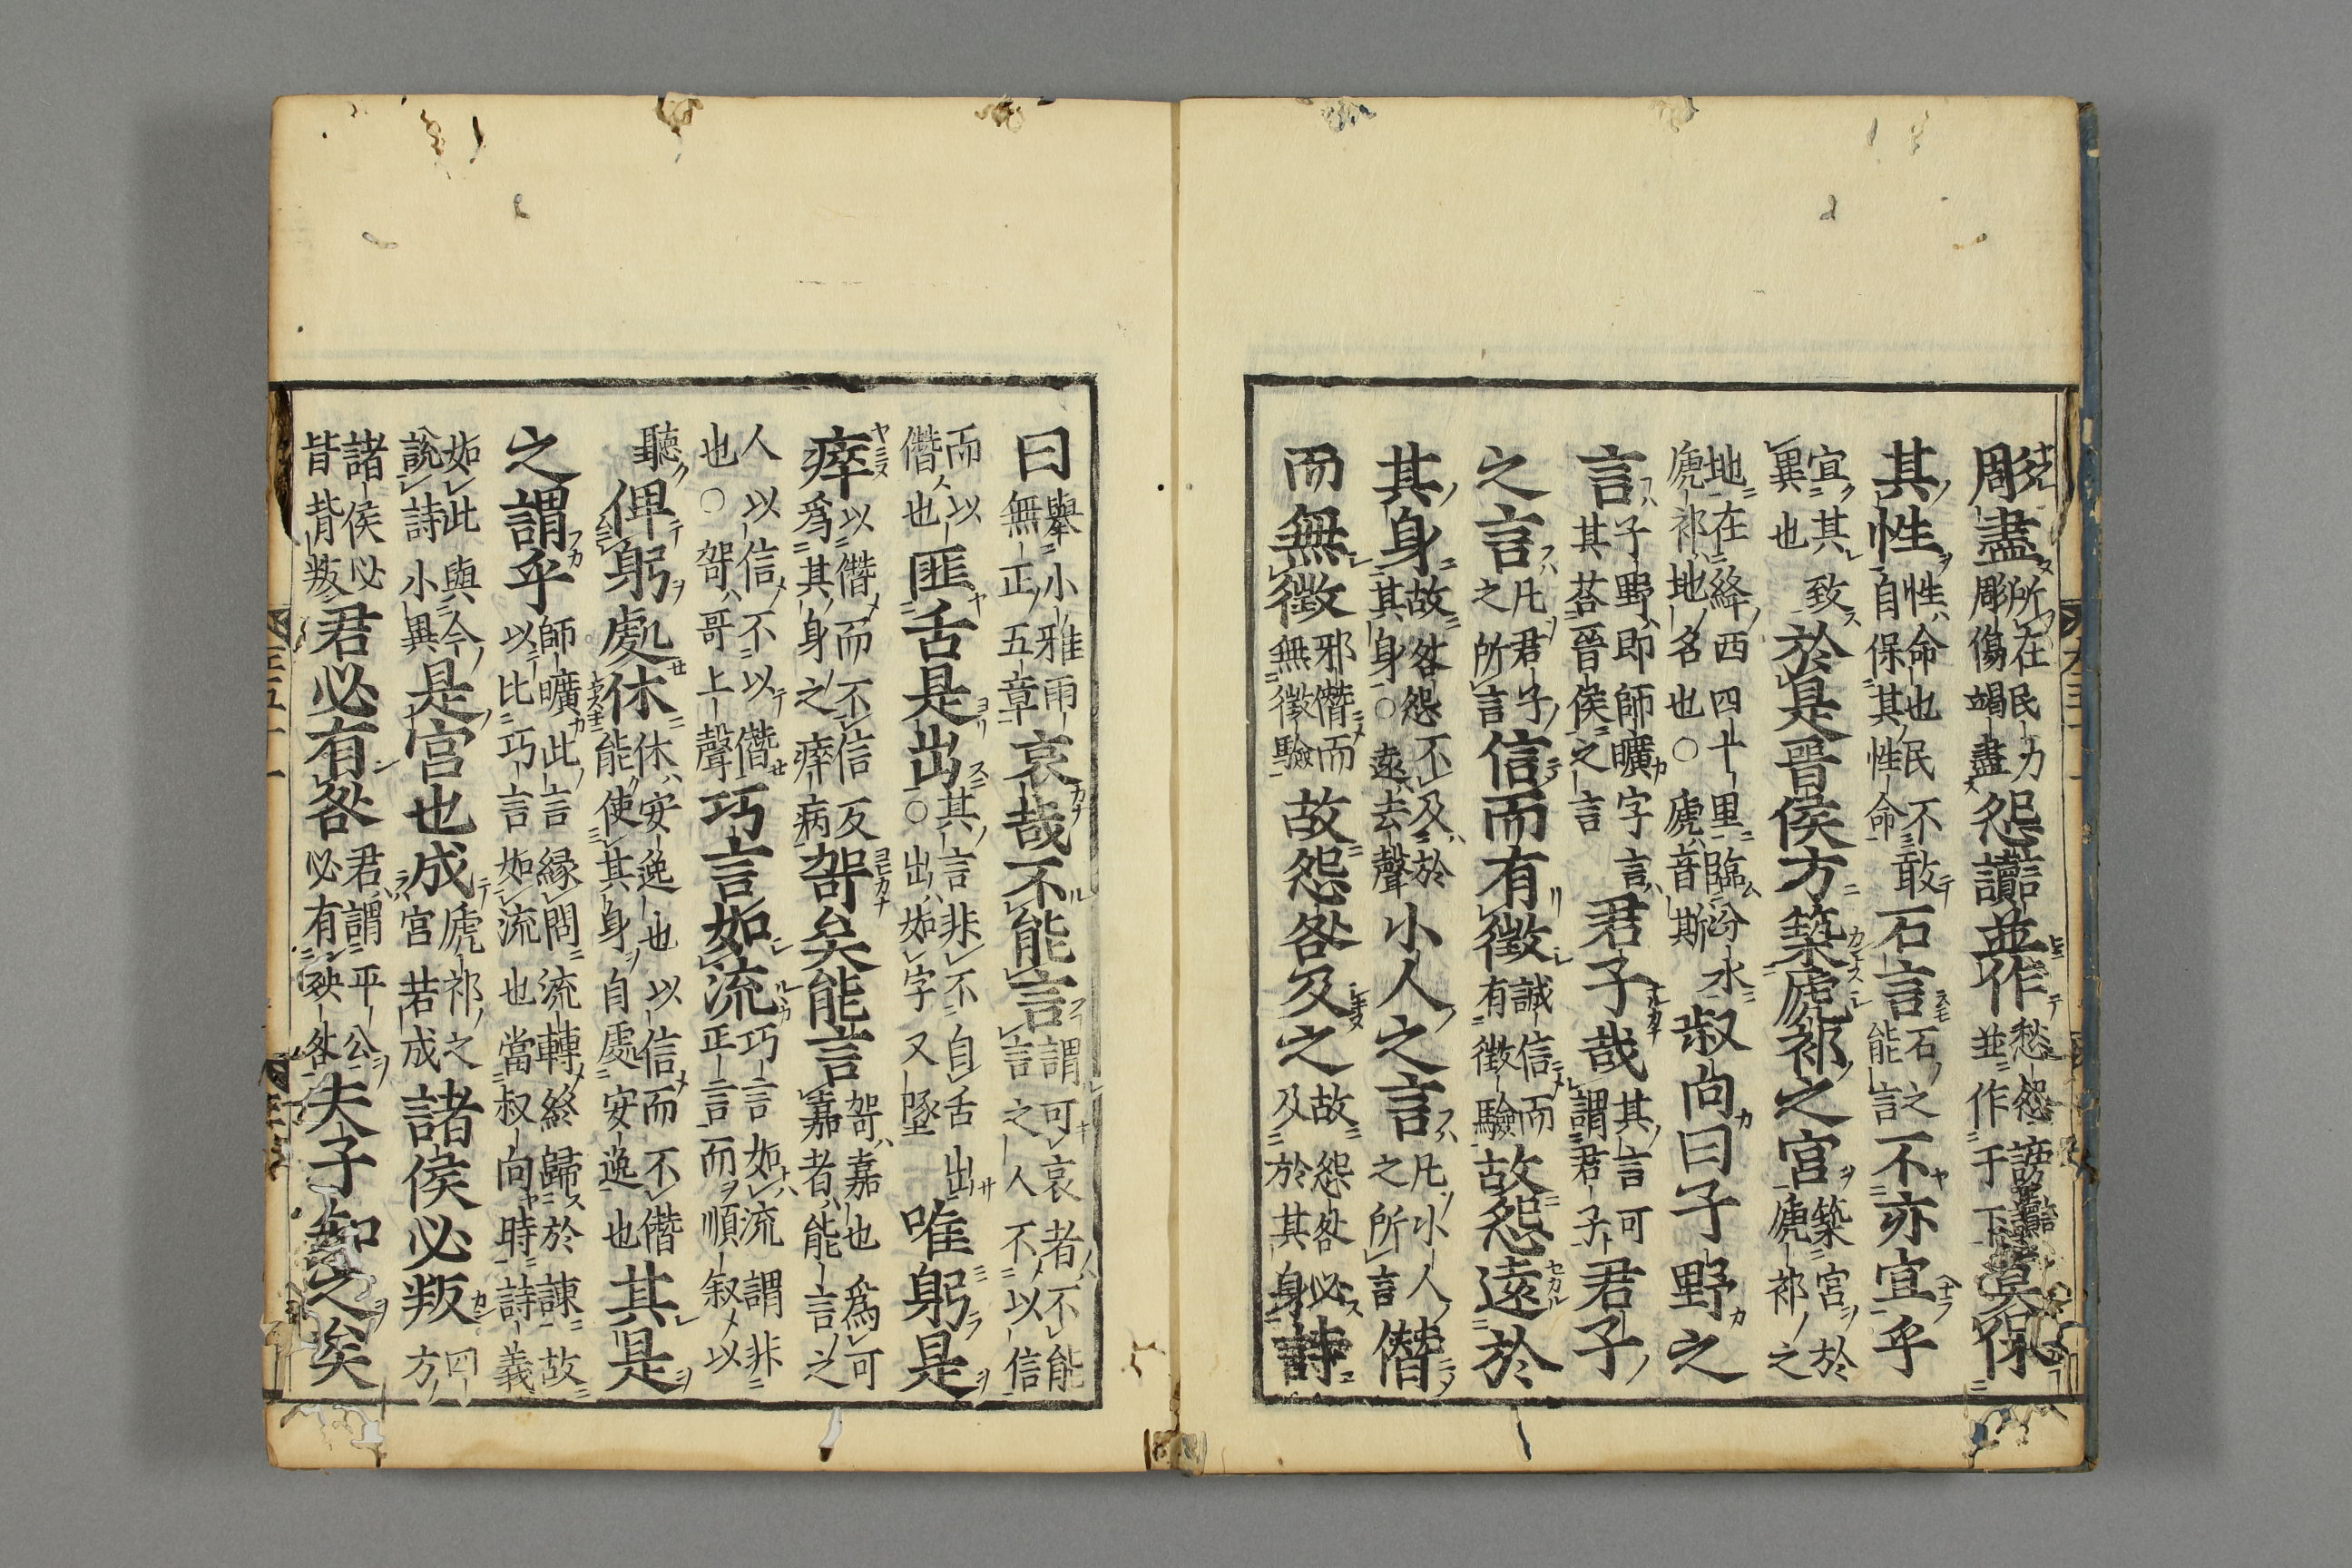 彫盡所在民力彫傷竭盡怨讟並作愁怨謗讟並作于下莫保
其性性命也民不敢自保其性命石言石之能言不亦宜乎
宜其致異也於是晋侯方築虒祁之宮築宮於虒祁之
地在絳西四十里臨汾水虒祁地名也○虒音斯叔向曰子野之
言子野即師曠字言其荅晉侯之言君子哉其言可謂君子君子
之言凡君子之所言信而有徵誠信而有徵驗故怨遠於
其身故咎怨不及於其身○遠去聲小人之言凡小人之所言僭
而無徵邪僭而無徵驗故怨咎及之故怨咎必及於其身詩
曰舉小雅雨無正五章哀哉不能言謂可哀者不能言之人不以信
而以僭也匪舌是出其言非不自舌出○出如字又墜唯躬是
瘁以僭而不信反爲其身之瘁病哿矣能言哿嘉也爲可嘉者能言之
人以信不以僭也○哿哥上聲巧言如流巧言如流謂非正言而順叙以
聽俾躬處休休安逸也以信而不僭能使其身自處安逸也其是
之謂乎師曠此言縁問流轉終歸於諫故以比巧言如流也當叔向時詩義
如此與今說詩小異是宮也成虒祁之宮若成諸侯必叛四方
諸侯必皆背叛君必有咎君謂平公必有殃咎夫子知之矣